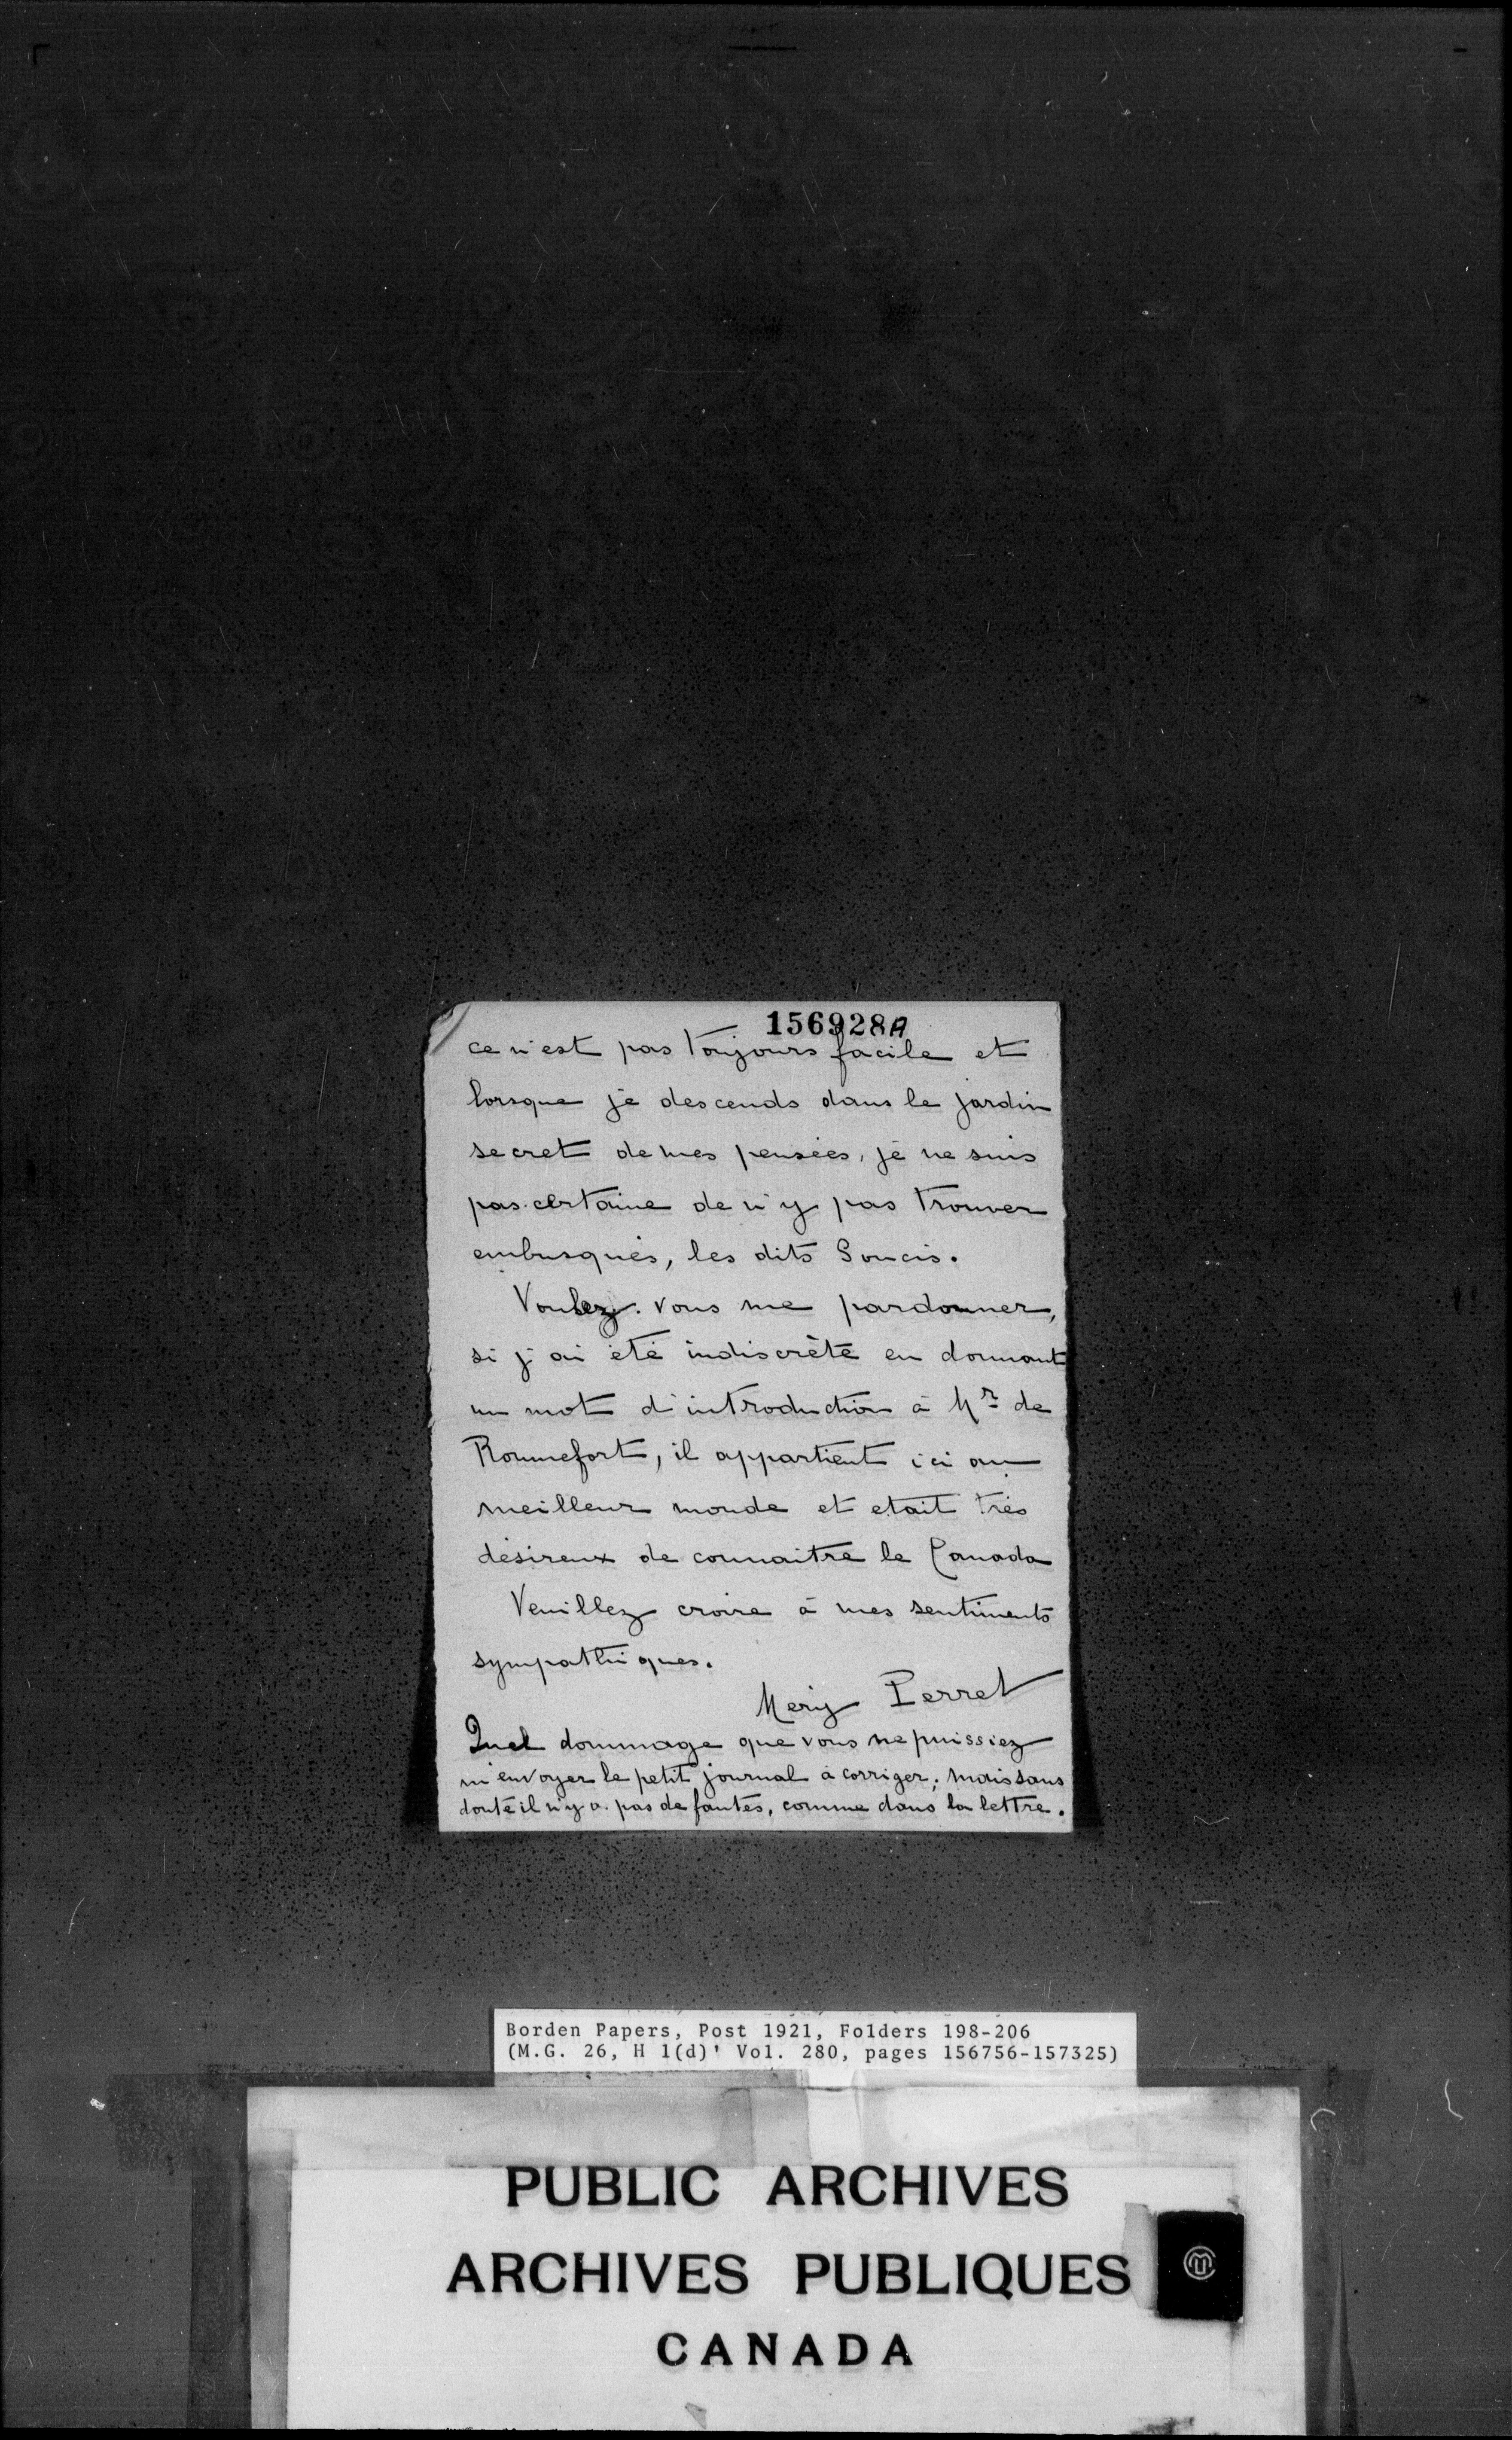 156928A
ce n'est pas toujours facile et
lorsque je descends dans le jardin
secret de mes pensées, je ne suis
pas certaine de n'y pas trouver
embusqués, les dits Soucis.
Voulez-vous me pardonner,
si j'ai été indiscrète en donnant
un mot d'introduction à Mr de
Ronnefort, il appartient ici au
meilleur monde et etait très
désireux de connaitre le Canada
Veuillez croire à mes sentiments
sympathiques.
Mery Perret
Quel dommage que vous ne puissiez
m'envoyer le petit journal à corriger; mais sans
doute il n'y a pas de fautes, comme dans la lettre.
Borden Papers, Post 1921, Folders 198-206
(M.G. 26, H 1(d)' Vol. 280, pages 156756-157325)
PUBLIC ARCHIVES
ARCHIVES PUBLIQUES
CANADA